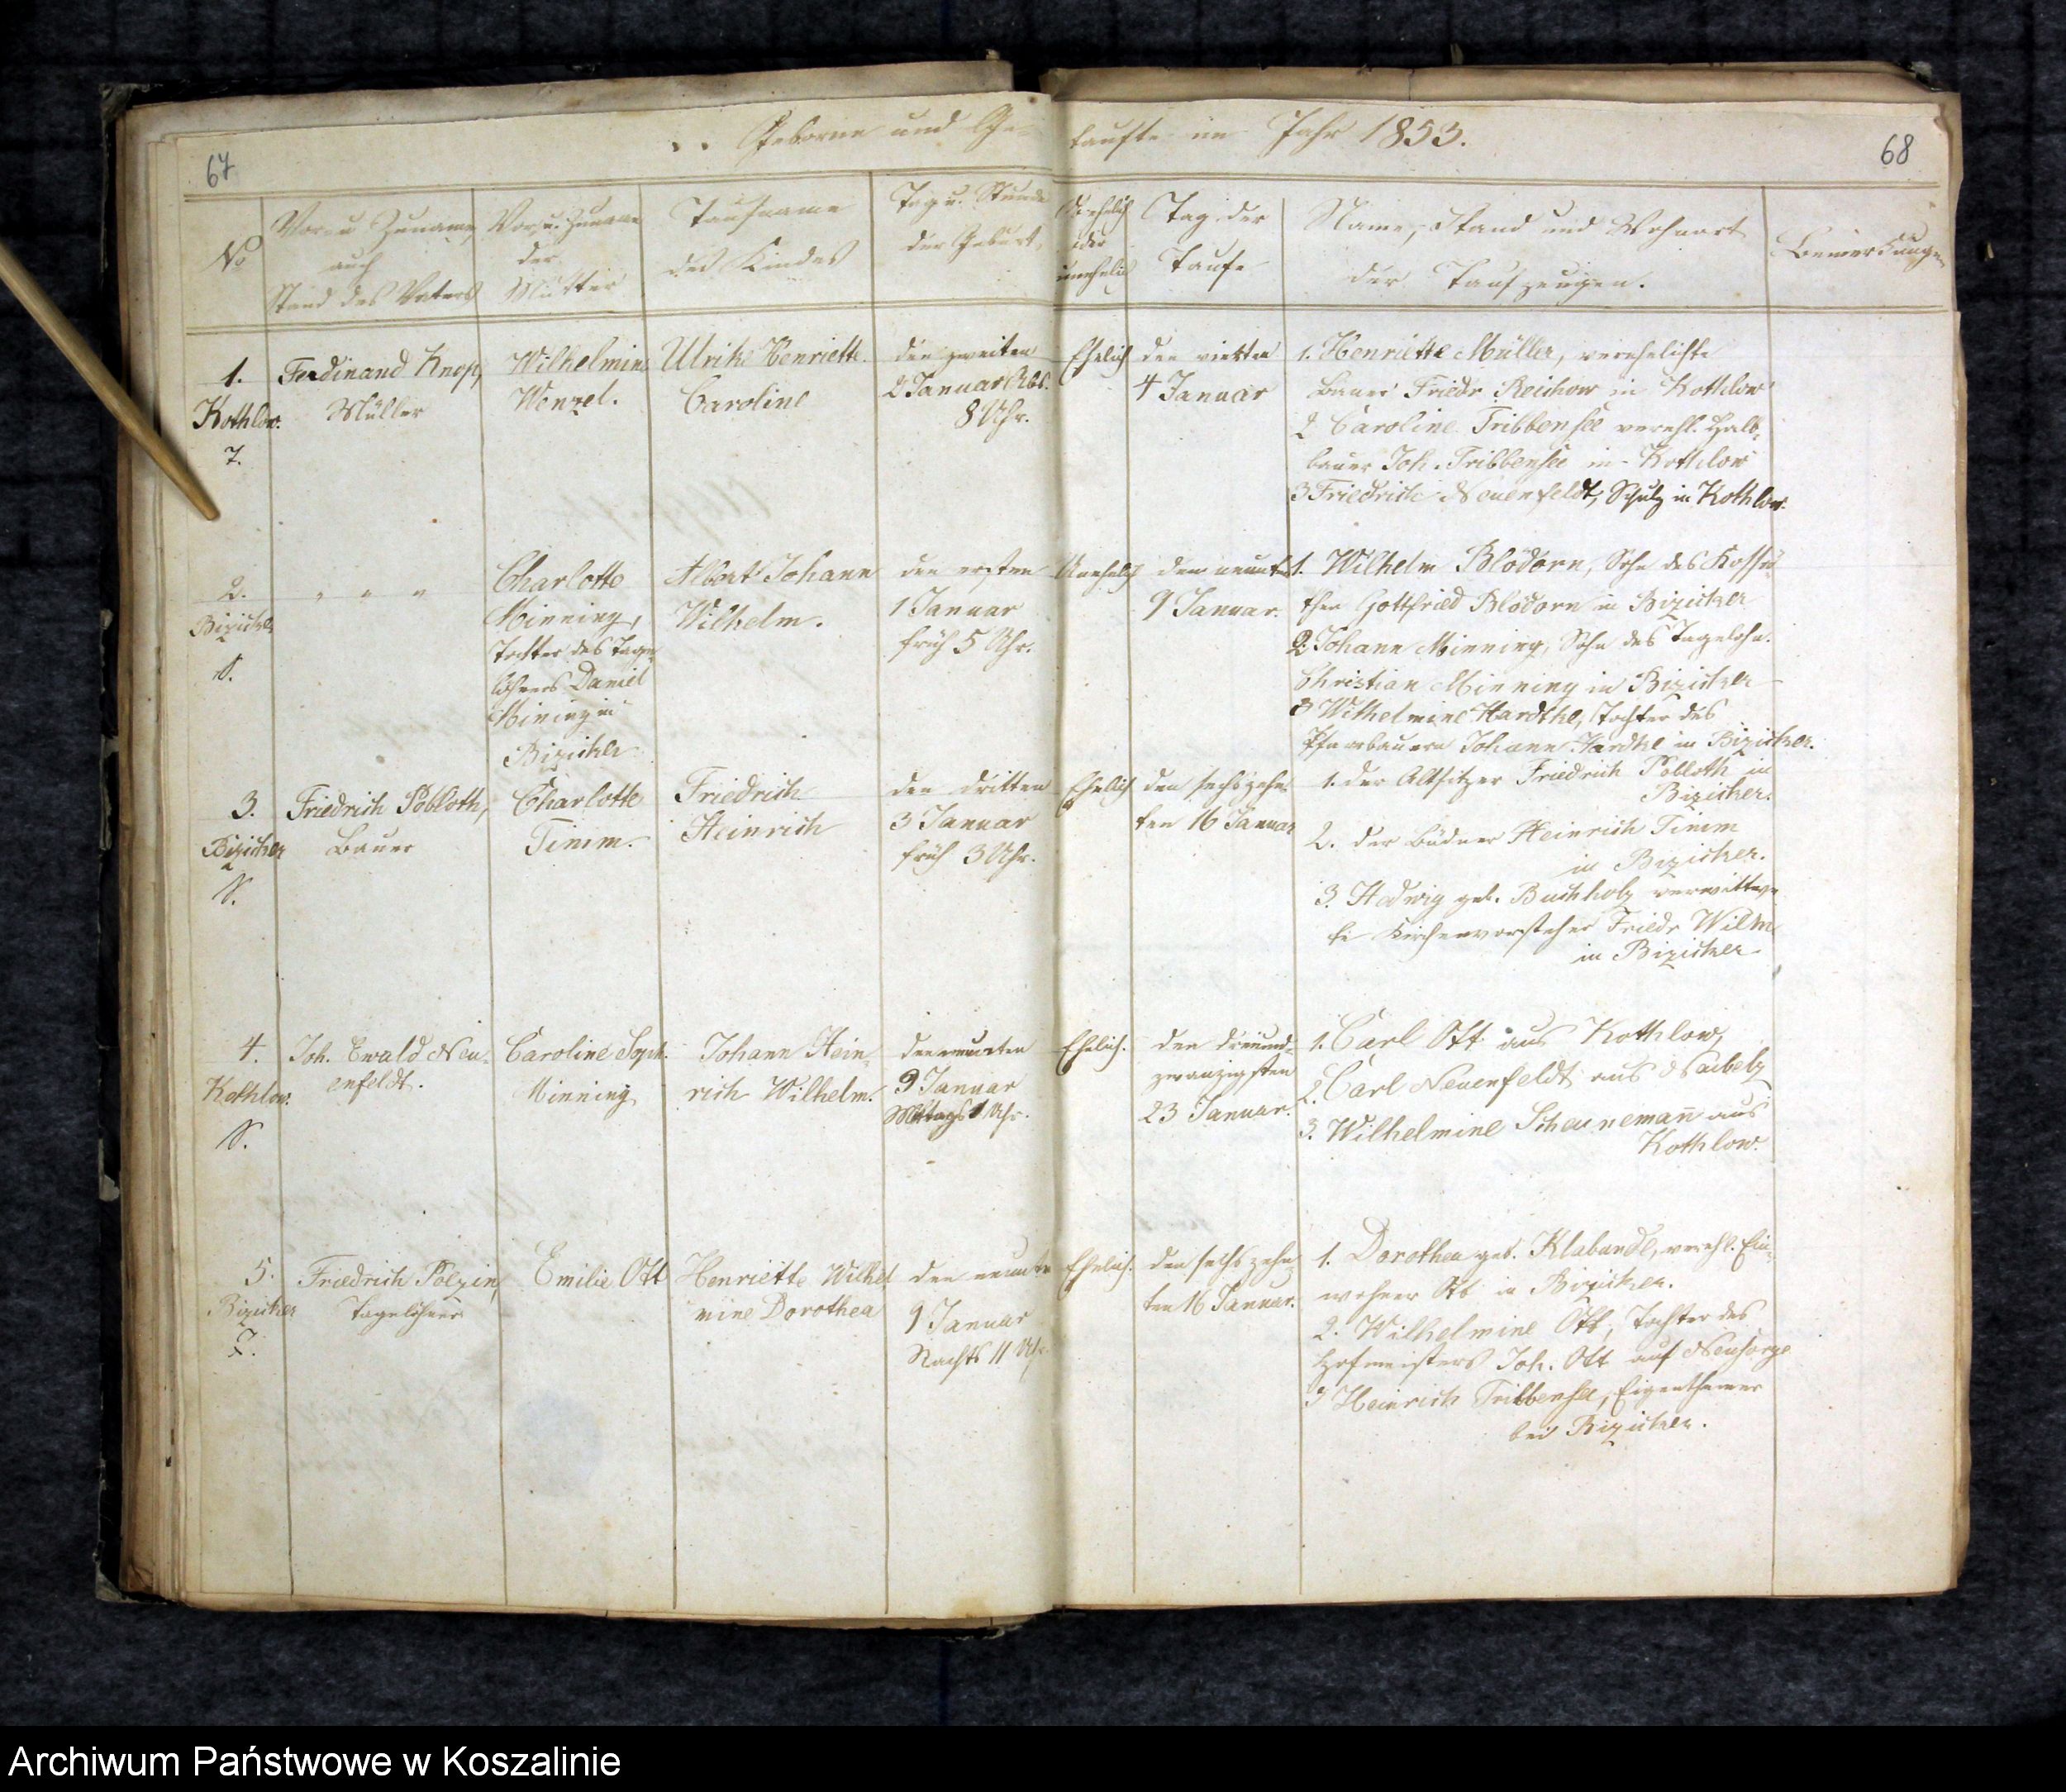 67
Geborne und Ge-
taufte im Jahr 1853.
68
No
Vor- u Zuname,
auch
Stand des Vaters
Vor- u. Zuname
der
Mutter
Taufname
des Kindes
Tag u. Stunde
der Geburt.
Ob ehelich
oder
unehelich
Tag der
Taufe
Name, Stand und Wohnort
der Taufzeugen.
Bemerkungen
1.
Kothlow.
T.
Ferdinand Knop,
Müller
Wilhelmine
Wenzel.
Ulrike Henriette
Caroline
den zweiten
2 Januar Abs.
8 Uhr.
Ehelich
den vierten
4 Januar
1. Henriette Müller, verehelichte
Bauer Friedr Reichow in Kothlow
2 Caroline Tribbensee verehl. Halb-
bauer Joh. Tribbensee in Kothlow
3 Friedrich Neuenfeldt, Schulz in Kothlow.
2.
Bizicker
S.
" " "
Charlotte
Minning,
Tochter des Tage-
löhners Daniel
Mining in
Bizicker
Albert Johann
Wilhelm.
den ersten
1 Januar
früh 5 Uhr.
Unehelich
den neunten
9 Januar.
1. Wilhelm Blödorn, Sohn des Kossä-
then Gottfried Blödorn in Bizicker
2. Johann Minning, Sohn des Tagelöhn.
Christian Minning in Bizicker
3 Wilhelmine Hardtke, Tochter des
Pfarrbauern Johann Hardke in Bizicker.
3.
Bizicker
S.
Friedrich Pobloth,
Bauer
Charlotte
Timm.
Friedrich
Heinrich
den dritten
3 Januar
früh 3 Uhr.
Ehelich
den sechszehn-
ten 16 Januar
1. der Altsitzer Friedrich Pobloth in
Bizicker.
2. der Büdner Heinrich Timm
in Bizicker.
3. Hedwig geb. Buchholz verwittwe-
te Kirchenvorsteher Friedr Wilm
in Bizicker
4.
Kothlow.
S.
Joh. Ewald Neu-
enfeldt.
Caroline Soph.
Minning
Johann Hein-
rich Wilhelm.
den neunten
9 Januar
Mittags 1 Uhr.
Ehelich.
den dreiund-
zwanzigsten
23 Januar.
1. Carl Ott aus Kothlow,
2. Carl Neuenfeldt aus
3. Wilhelmine Scheunemann aus
Kothlow.
5.
Bizicker
T.
Friedrich Polzin,
Tagelöhner
Emilie Ott
Henriette Wilhel
mine Dorothea
den neunten
9 Januar
Nachts 11 Uhr
Ehelich.
den sechszehn-
ten 16 Januar.
1. Dorothea geb. Klabunde, verehl. Ein-
wohner Ott in Bizicker.
2. Wilhelmine Ott, Tochter des
Hofmeisters Joh. Ott auf Neusorge
3 Heinrich Tribbensee, Eigenthümer
bei Bizicker.
Archiwum Państwowe w Koszalinie